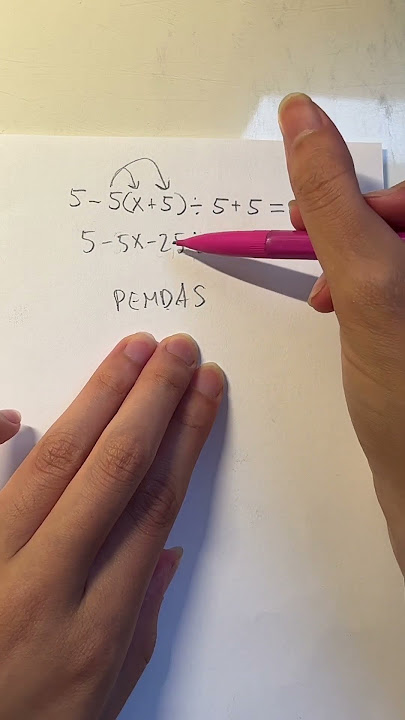 5 - 5(x + 5) ÷ 5 + 5 =
5 - 5x - 25
PEMDAS